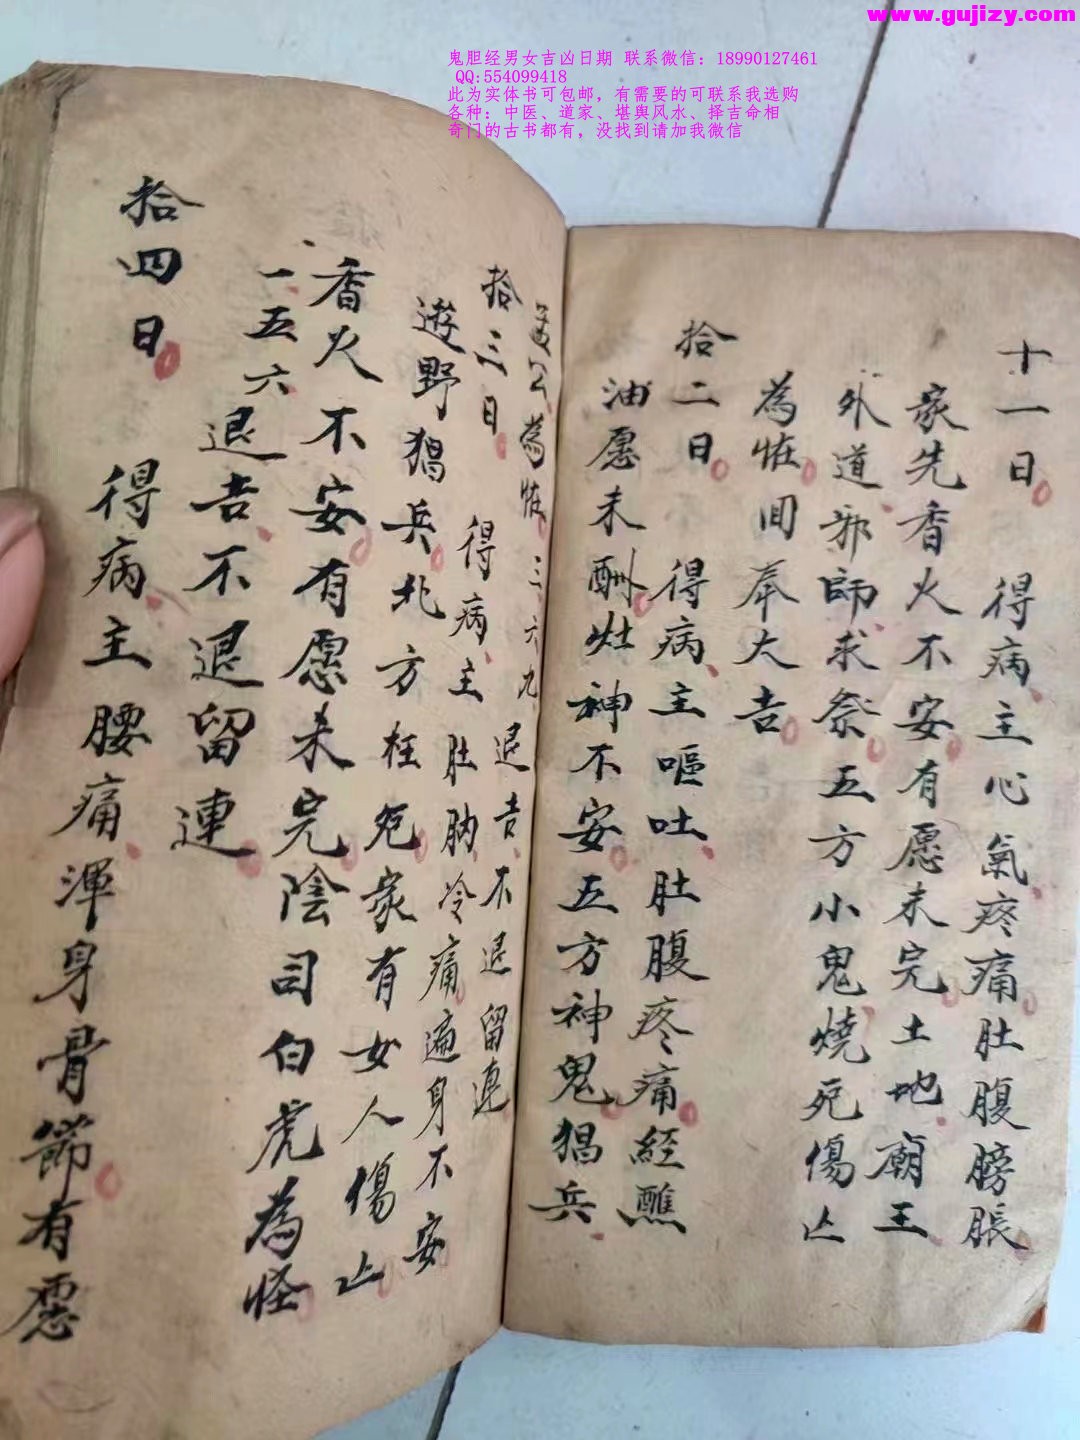 www.gujizy.com
鬼胆经男女吉凶日期 联系微信：18990127461
QQ:554099418
此为实体书可包邮，有需要的可联系我选购
各种：中医、道家、堪舆风水、择吉命相
奇门的古书都有，没找到请加我微信
十一日 得病主心氣疼痛肚腹膀脹
家先香火不安有愿未完土地廟王
外道邪師求祭五方小鬼燒死傷亾
為恠囬奉大吉
拾二日 得病主嘔吐肚腹疼痛經醮
油愿未酬灶神不安五方神鬼猖兵
為恠三六九退吉不退留連
拾三日 得病主肚肭冷痛遍身不安
遊野猖兵北方枉死家有女人傷亾
香火不安有愿未完陰司白虎為怪
一五六退吉不退留連
拾四日 得病主腰痛渾身骨節有愿